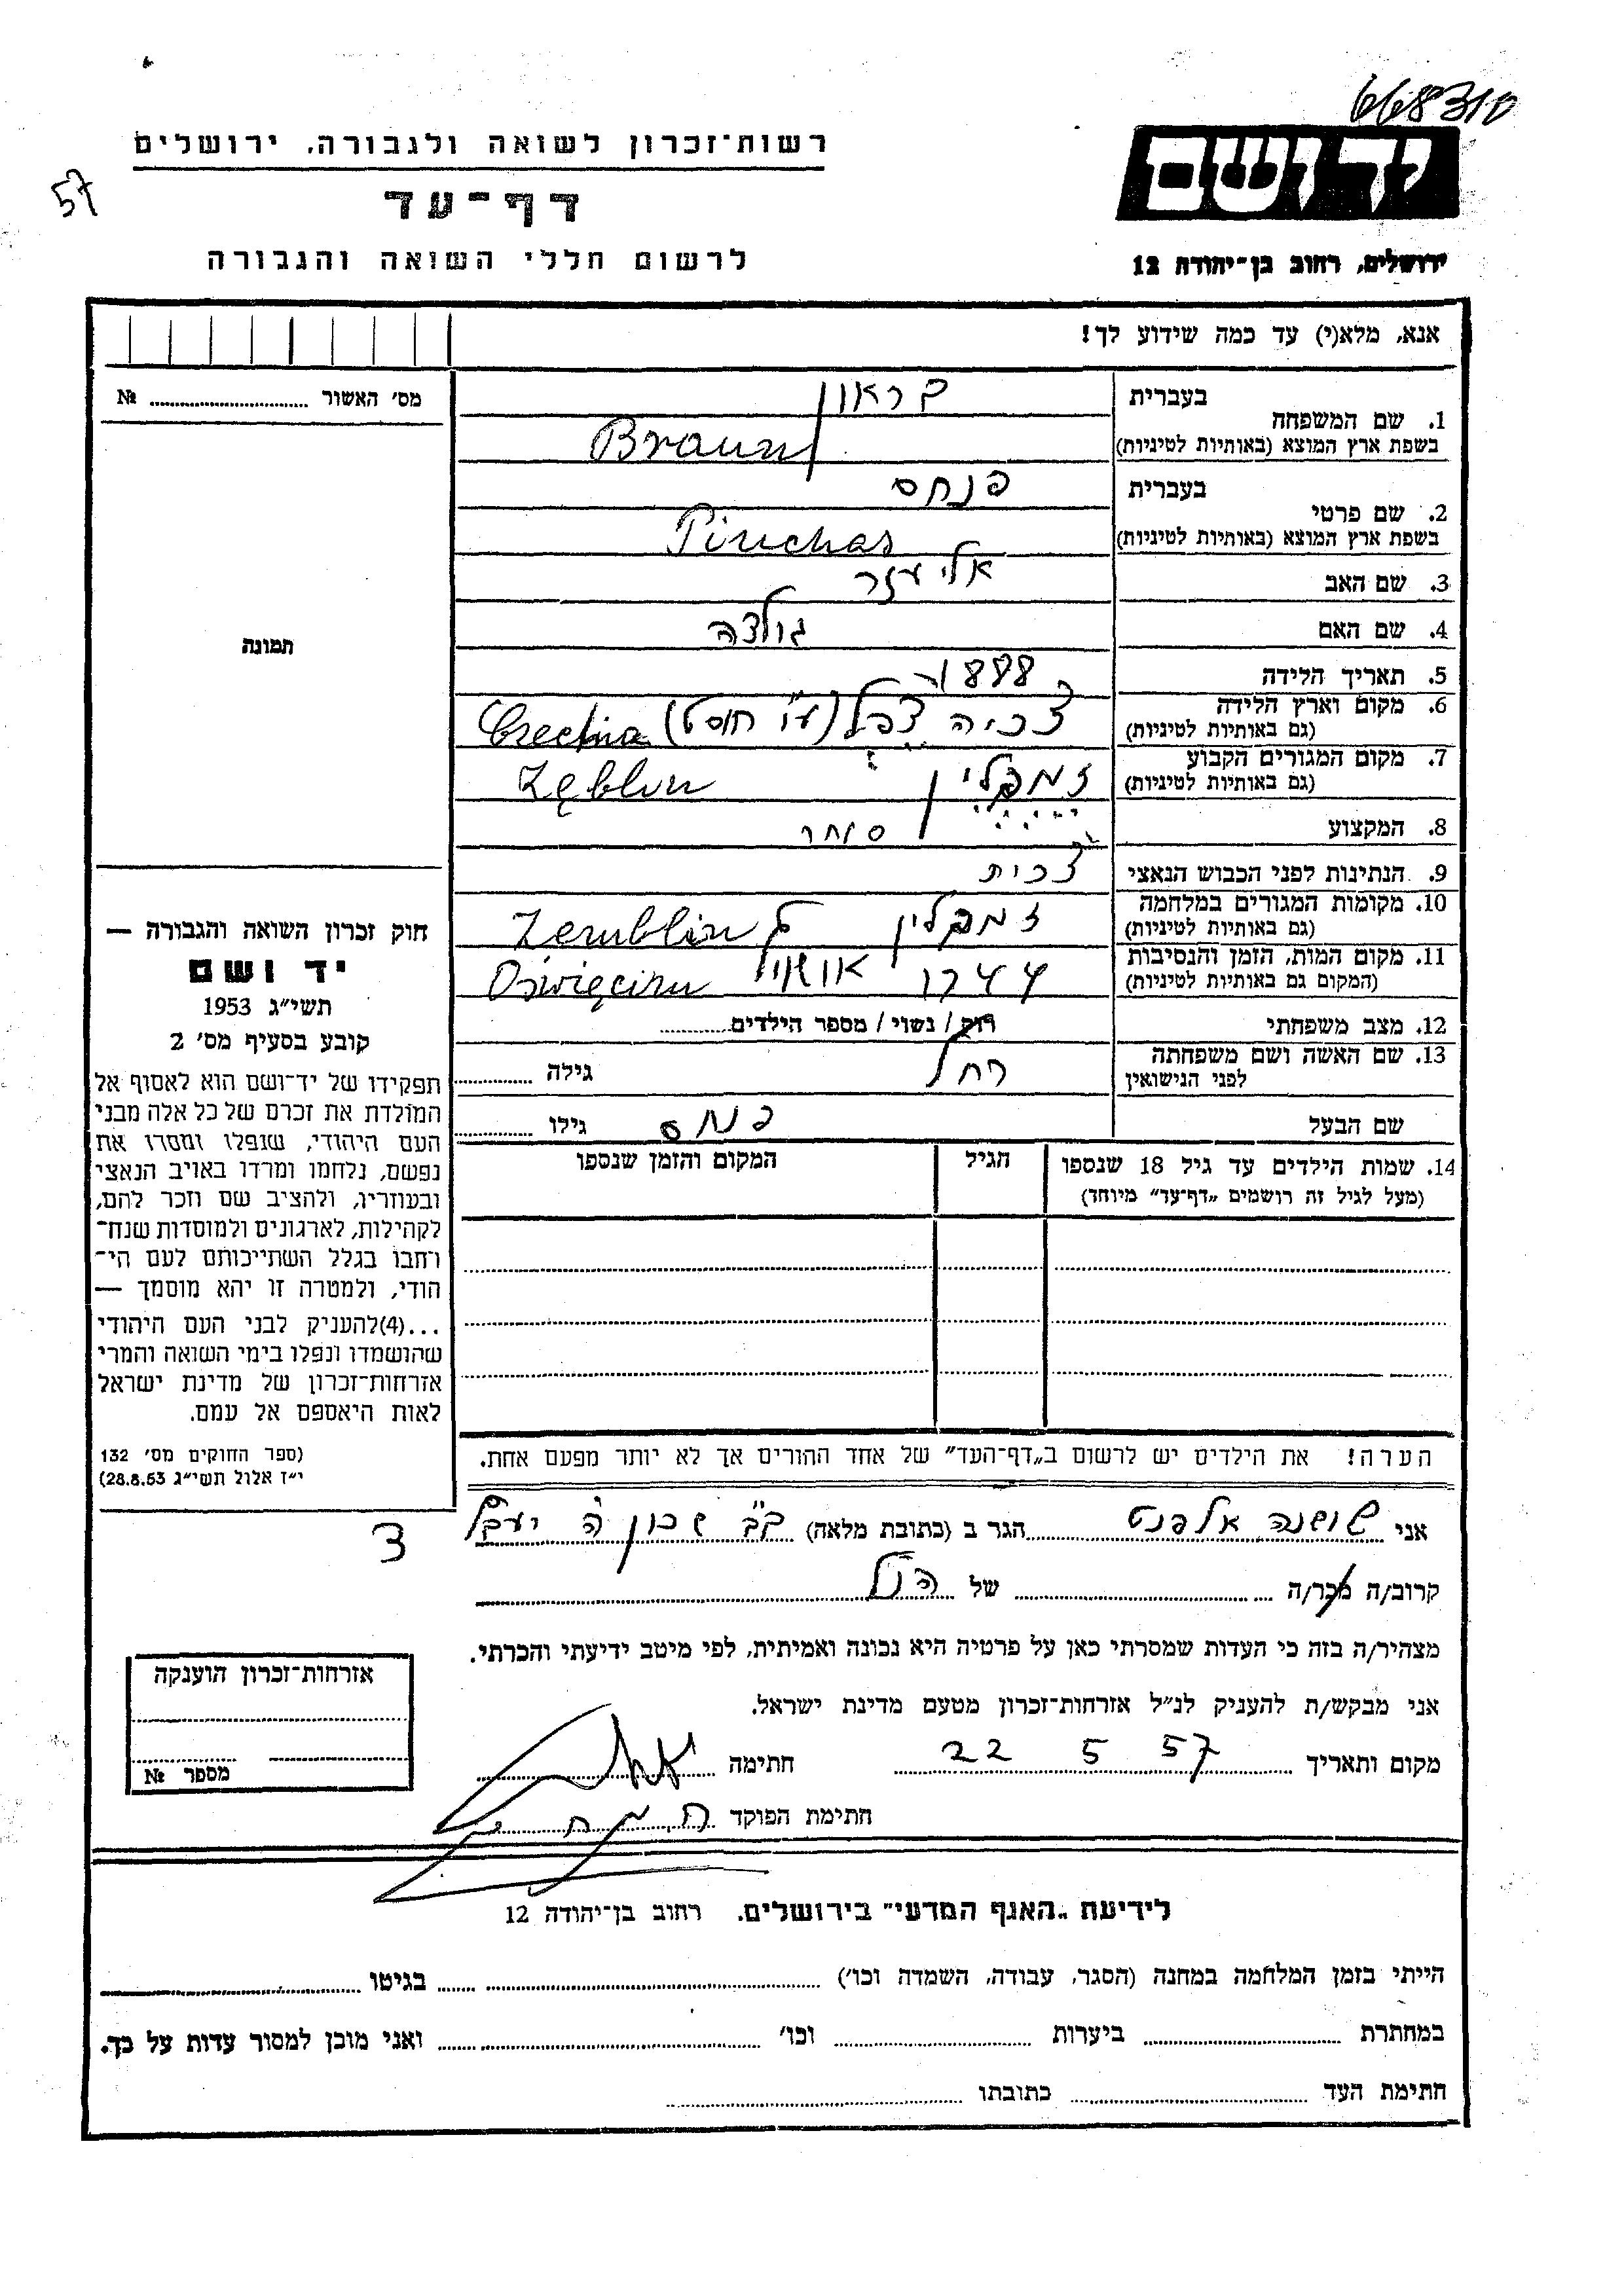 668310
יד ושם
ירושלים, רחוב בן־יהודה 12
רשות־זכרון לשואה ולגבורה, ירושלים
57
דף־עד
לרשום חללי השואה והגבורה
אנא, מלא(י) עד כמה שידוע לך!
מס׳ האשור № 
1. שם המשפחה
בעברית בראון
בשפת ארץ המוצא (באותיות לטיניות) Braun
2. שם פרטי
בעברית פנחס
בשפת ארץ המוצא (באותיות לטיניות) Pinchas
3. שם האב אליעזר
4. שם האם גולדה
5. תאריך הלידה 1888
6. מקום וארץ הלידה
(גם באותיות לטיניות) צכיה (ע״י חוסט) Czechia
7. מקום המגורים הקבוע
(גם באותיות לטיניות) זמבלין
8. המקצוע סוחר
9. הנתינות לפני הכבוש הנאצי צכית
10. מקומות המגורים במלחמה
(גם באותיות לטיניות) זמבלין Zemblin
11. מקום המות, הזמן והנסיבות
(המקום גם באותיות לטיניות) 1944 Oświęcim
12. מצב משפחתי רוק / נשוי / מספר הילדים
13. שם האשה ושם משפחתה
לפני הנישואין רחל גילה
שם הבעל פנחס גילו
14. שמות הילדים עד גיל 18 שנספו
(מעל לגיל זה רושמים „דף־עד״ מיוחד)
הגיל
המקום והזמן שנספו
תמונה
חוק זכרון השואה והגבורה —
יד ושם
תשי״ג 1953
קובע בסעיף מס׳ 2
תפקידו של יד־ושם הוא לאסוף אל
המולדת את זכרם של כל אלה מבני
העם היהודי, שנפלו ומסרו את
נפשם, נלחמו ומרדו באויב הנאצי
ובעוזריו, ולהציב שם וזכר להם,
לקהילות, לארגונים ולמוסדות שנח־
רחבו בגלל השתייכותם לעם הי־
הודי, ולמטרה זו יהא מוסמך —
...(4)להעניק לבני העם היהודי
שהושמדו ונפלו בימי השואה והמרי
אזרחות־זכרון של מדינת ישראל
לאות היאספם אל עמם.
(ספר החוקים מס׳ 132
י״ז אלול תשי״ג 28.8.53)
הערה! את הילדים יש לרשום ב„דף־העד״ של אחד ההורים אך לא יותר מפעם אחת.
אני שושנה אלפנט הגר ב (כתובת מלאה) ב״ב שכון ה
קרוב/ה מכר/ה של הנ״ל
מצהיר/ה בזה כי העדות שמסרתי כאן על פרטיה היא נכונה ואמיתית, לפי מיטב ידיעתי והכרתי.
אני מבקש/ת להעניק לנ״ל אזרחות־זכרון מטעם מדינת ישראל.
מקום ותאריך 22 5 57 חתימה
חתימת הפוקד
אזרחות־זכרון הוענקה
מספר №
לידיעת „האגף המדעי״ בירושלים. רחוב בן־יהודה 12
הייתי בזמן המלחמה במחנה (הסגר, עבודה, השמדה וכו׳) בגיטו
במחתרת ביערות וכו׳ ואני מוכן למסור עדות על כך.
חתימת העד כתובתו